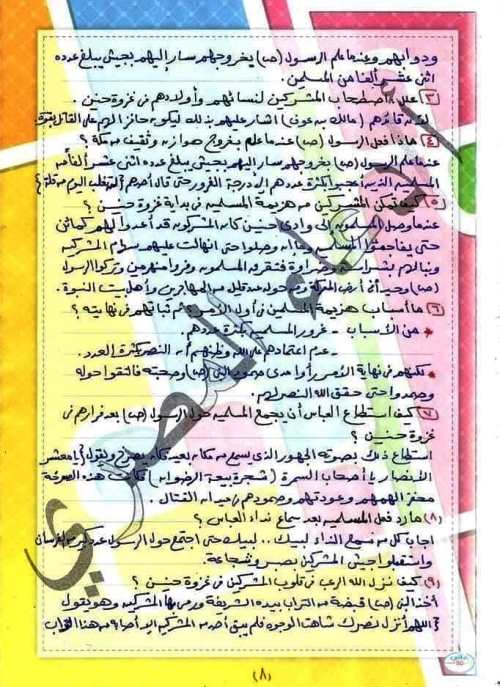 ودوابهم وعندما علم الرسول (ص) بخروجهم سار إليهم بجيش يبلغ عدده
اثني عشر ألفا من المسلمين.
٣ علل / اصطحاب المشركين لنسائهم وأولادهم في غزوة حنين.
قائدهم (مالك بن عوف) أشار عليهم بذلك ليكون حافز الهم على القتال
٤ ماذا فعل الرسول (ص) عندما علم بخروج هوازن وثقيف من مكة؟
عندما علم الرسول (ص) بخروجهم سار إليهم بجيش يبلغ عدده اثني عشر ألفا من
المسلمين الذين أعجبوا بكثرة عددهم إلى درجة الغرور حتى قال أحدهم {لن نغلب اليوم من قلة}
٥ كيف تمكن المشركين من هزيمة المسلمين في بداية غزوة حنين؟
عندما وصل المسلمون إلى وادي حنين كان المشركون قد أعدوا لهم كمائن
حتى يفاجئوا المسلمين وصلوا حتى انهالت عليهم سهام المشركين
ونبالهم بشراسة وضراوة فتفرق المسلمون وفروا منهزمين وتركوا الرسول
(ص) وحيدا في أرض المعركة ومن حوله عدد قليل من المهاجرين وأهل بيت النبوة.
٦ ما أسباب هزيمة المسلمين في أول الأمر؟ ثم ثباتهم في نهايته؟
* من الأسباب - غرور المسلمين بكثرة عددهم.
- عدم اعتمادهم على الله وظنهم أن النصر بكثرة العدد.
* لكنهم في نهاية الأمر رأوا مدى صمود النبي (ص) وصحبته فالتفوا حوله
وصمدوا حتى حقق الله النصر لهم.
٧ كيف استطاع العباس أن يجمع المسلمين حول الرسول (ص) بعد فرارهم في
غزوة حنين؟
استطاع ذلك بصوته الجهوري الذي يسمع من مكان بعيد فكان يصرخ ويقول {يا معشر
الأنصار يا أصحاب السمرة (شجرة بيعة الرضوان)} فكانت هذه الصرخة
محفز الهمهم وعودتهم وصمودهم في ميدان القتال.
(٨) ما رد فعل المسلمين بعد سماع نداء العباس؟
أجاب كل من سمع النداء لبيك.. لبيك حتى اجتمع حول الرسول عدد كبير من الفرسان
واستقبلوا جيش المشركين بصبر وشجاعة.
(٩) كيف نزل الله الرعب في قلوب المشركين في غزوة حنين؟
أخذ النبي (ص) قبضة من التراب بيده الشريفة ورمى بها المشركين وهو يقول
{اللهم أنزل نصرك شاهت الوجوه فلم يبق أحد من المشركين إلا أصابه من هذا التراب
(٨)